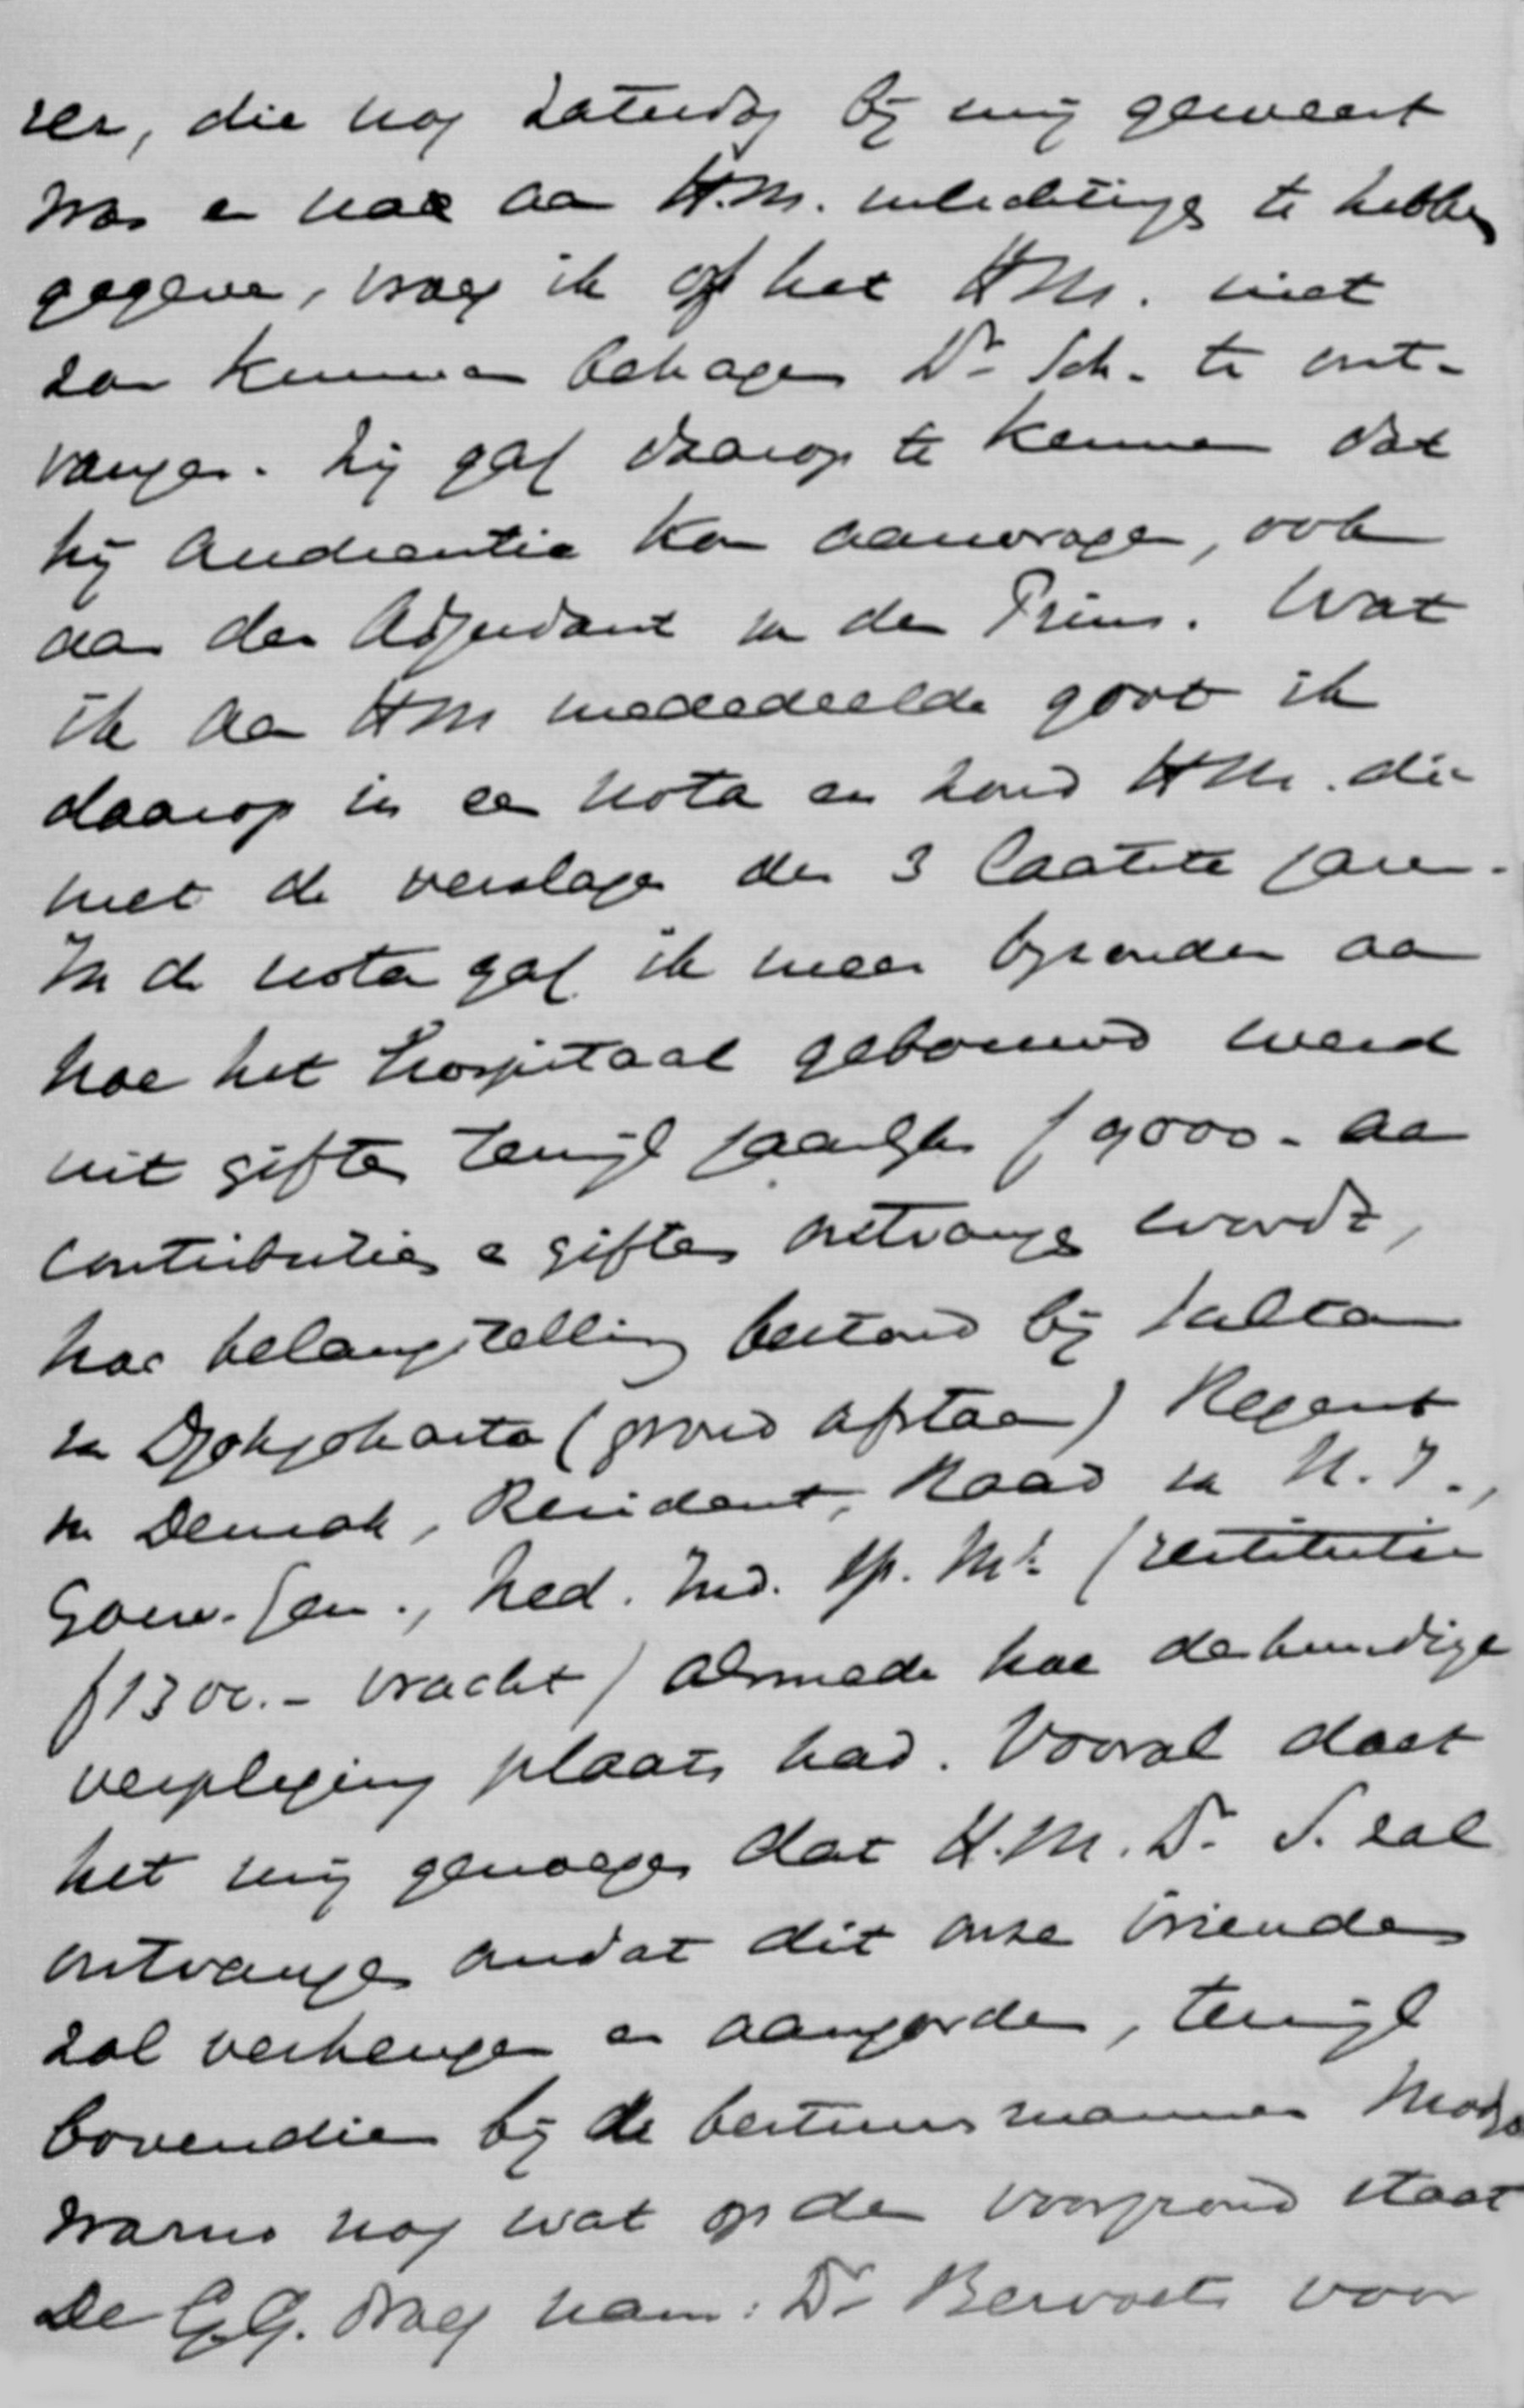 rer, die nog Zaterdag bij mij geweest
was en na aan H.M. inlichtingen te hebben
gegeven, vroeg ik of het H.M. niet
zou kunnen behagen Dr. Sch. te ont-
vangen. Zij gaf daarop te kennen dat
hij audientie kon aanvragen, ook
aan den Adjudant van den Prins. Wat
ik aan HM mededeelde goot ik
daarop in een nota en zond H.M. die
met de verslagen der 3 laatste jaren.
In de nota gaf ik meer bijzonder aan
hoe het hospitaal gebouwd werd
uit giften terwijl jaarlijks f 9000.- aan
contributies en giften ontvangen wordt,
hoe belangstelling bestond bij Sultan
van Djokjokarta (grond afstaan) Regent
van Demak, Resident, Raad van N.I.,
Gouv. Gen., Ned. Ind. Sp. Mij. (restitutie
f 1300.- vracht) alsmede hoe deskundige
verpleging plaats had. Vooral doet
het mij genoegen dat H.M. Dr. S. zal
ontvangen omdat dit onze vrienden
zal verheugen en aangorden, terwijl
bovendien bij de bestuursmannen
warno nog wat op den voorgrond staat
De G.G. droeg nam. Dr. Bervoets voor